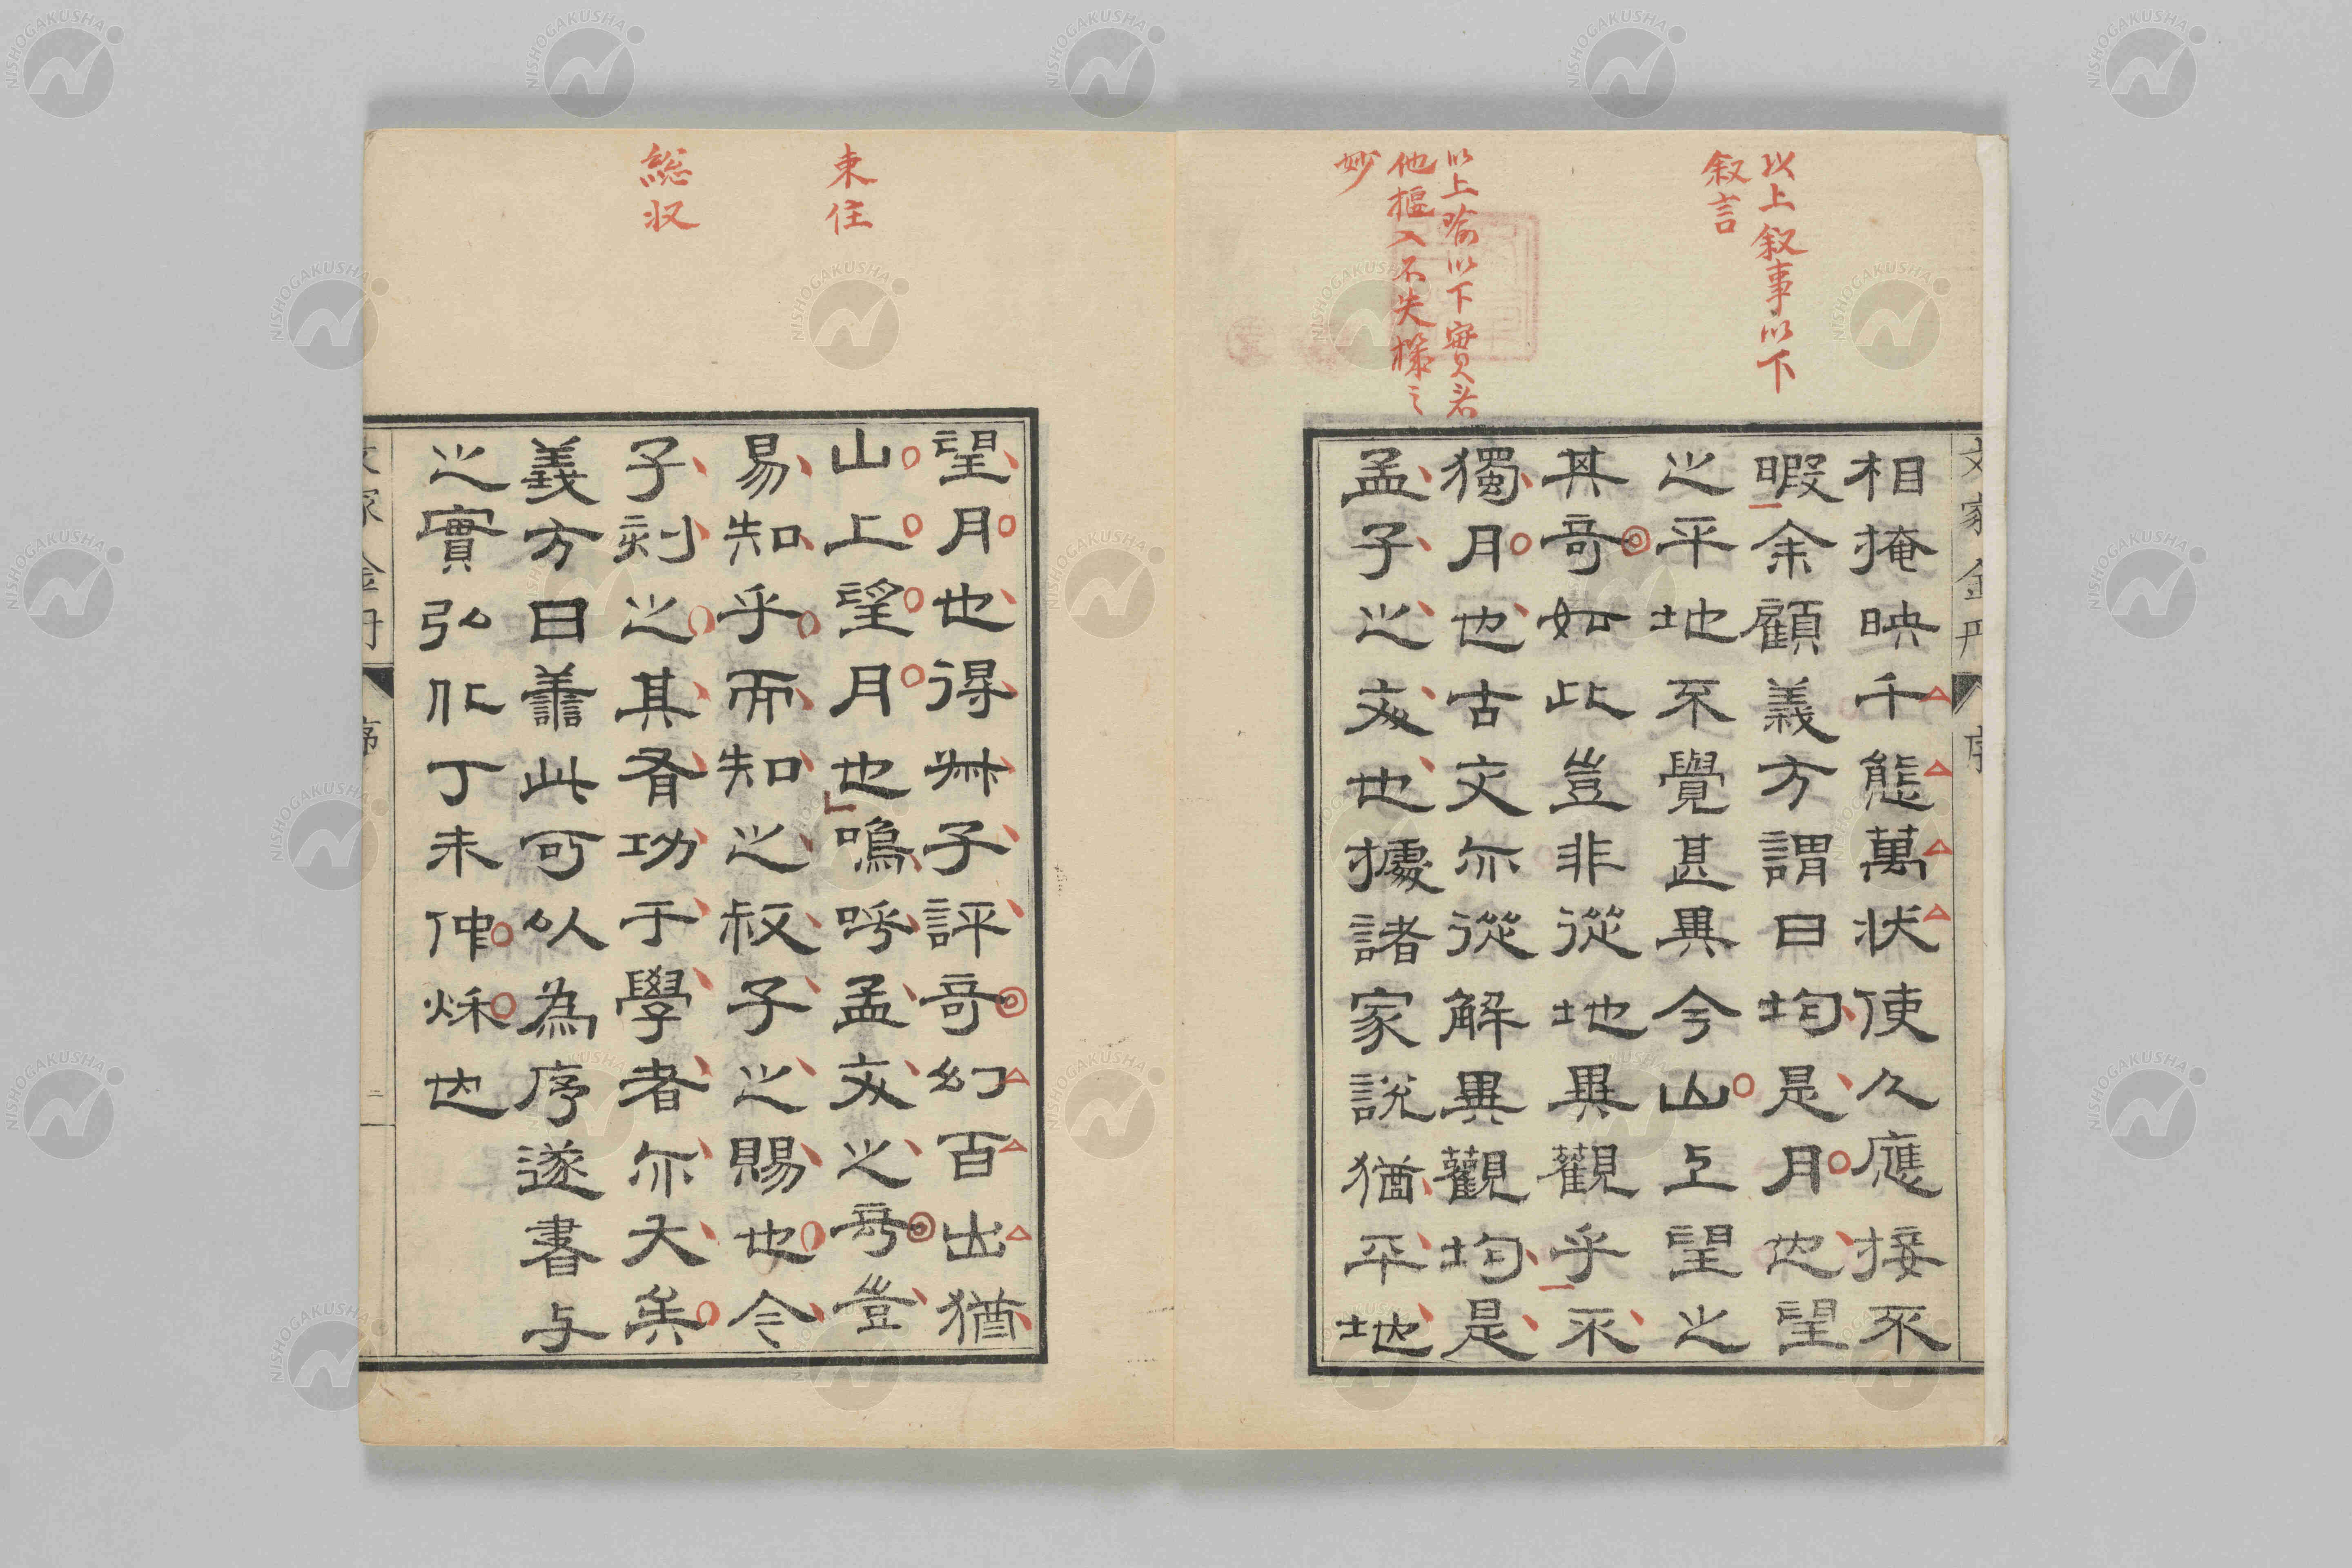 以上叙事以下
叙言
以上喻以下實者
他樞入不失樣之
妙
相掩映千態萬狀使久應接不
暇余顧義方謂曰均是月也望
之平地不覺甚異今山上望之
其奇如此豈非從地異觀乎不
獨月也古文亦從解異觀均是
孟子之文也據諸家說猶平地
東住
総収
望月也得叔子評奇幻百出猶
山上望月也嗚呼孟文之奇豈
易知乎而知之叔子之賜也今
子刻之其有功于學者亦大矣
義方曰善此可以為序遂書与
之實弘化丁未仲秋也
文家金丹
序
二
NISHOGAKUSHA